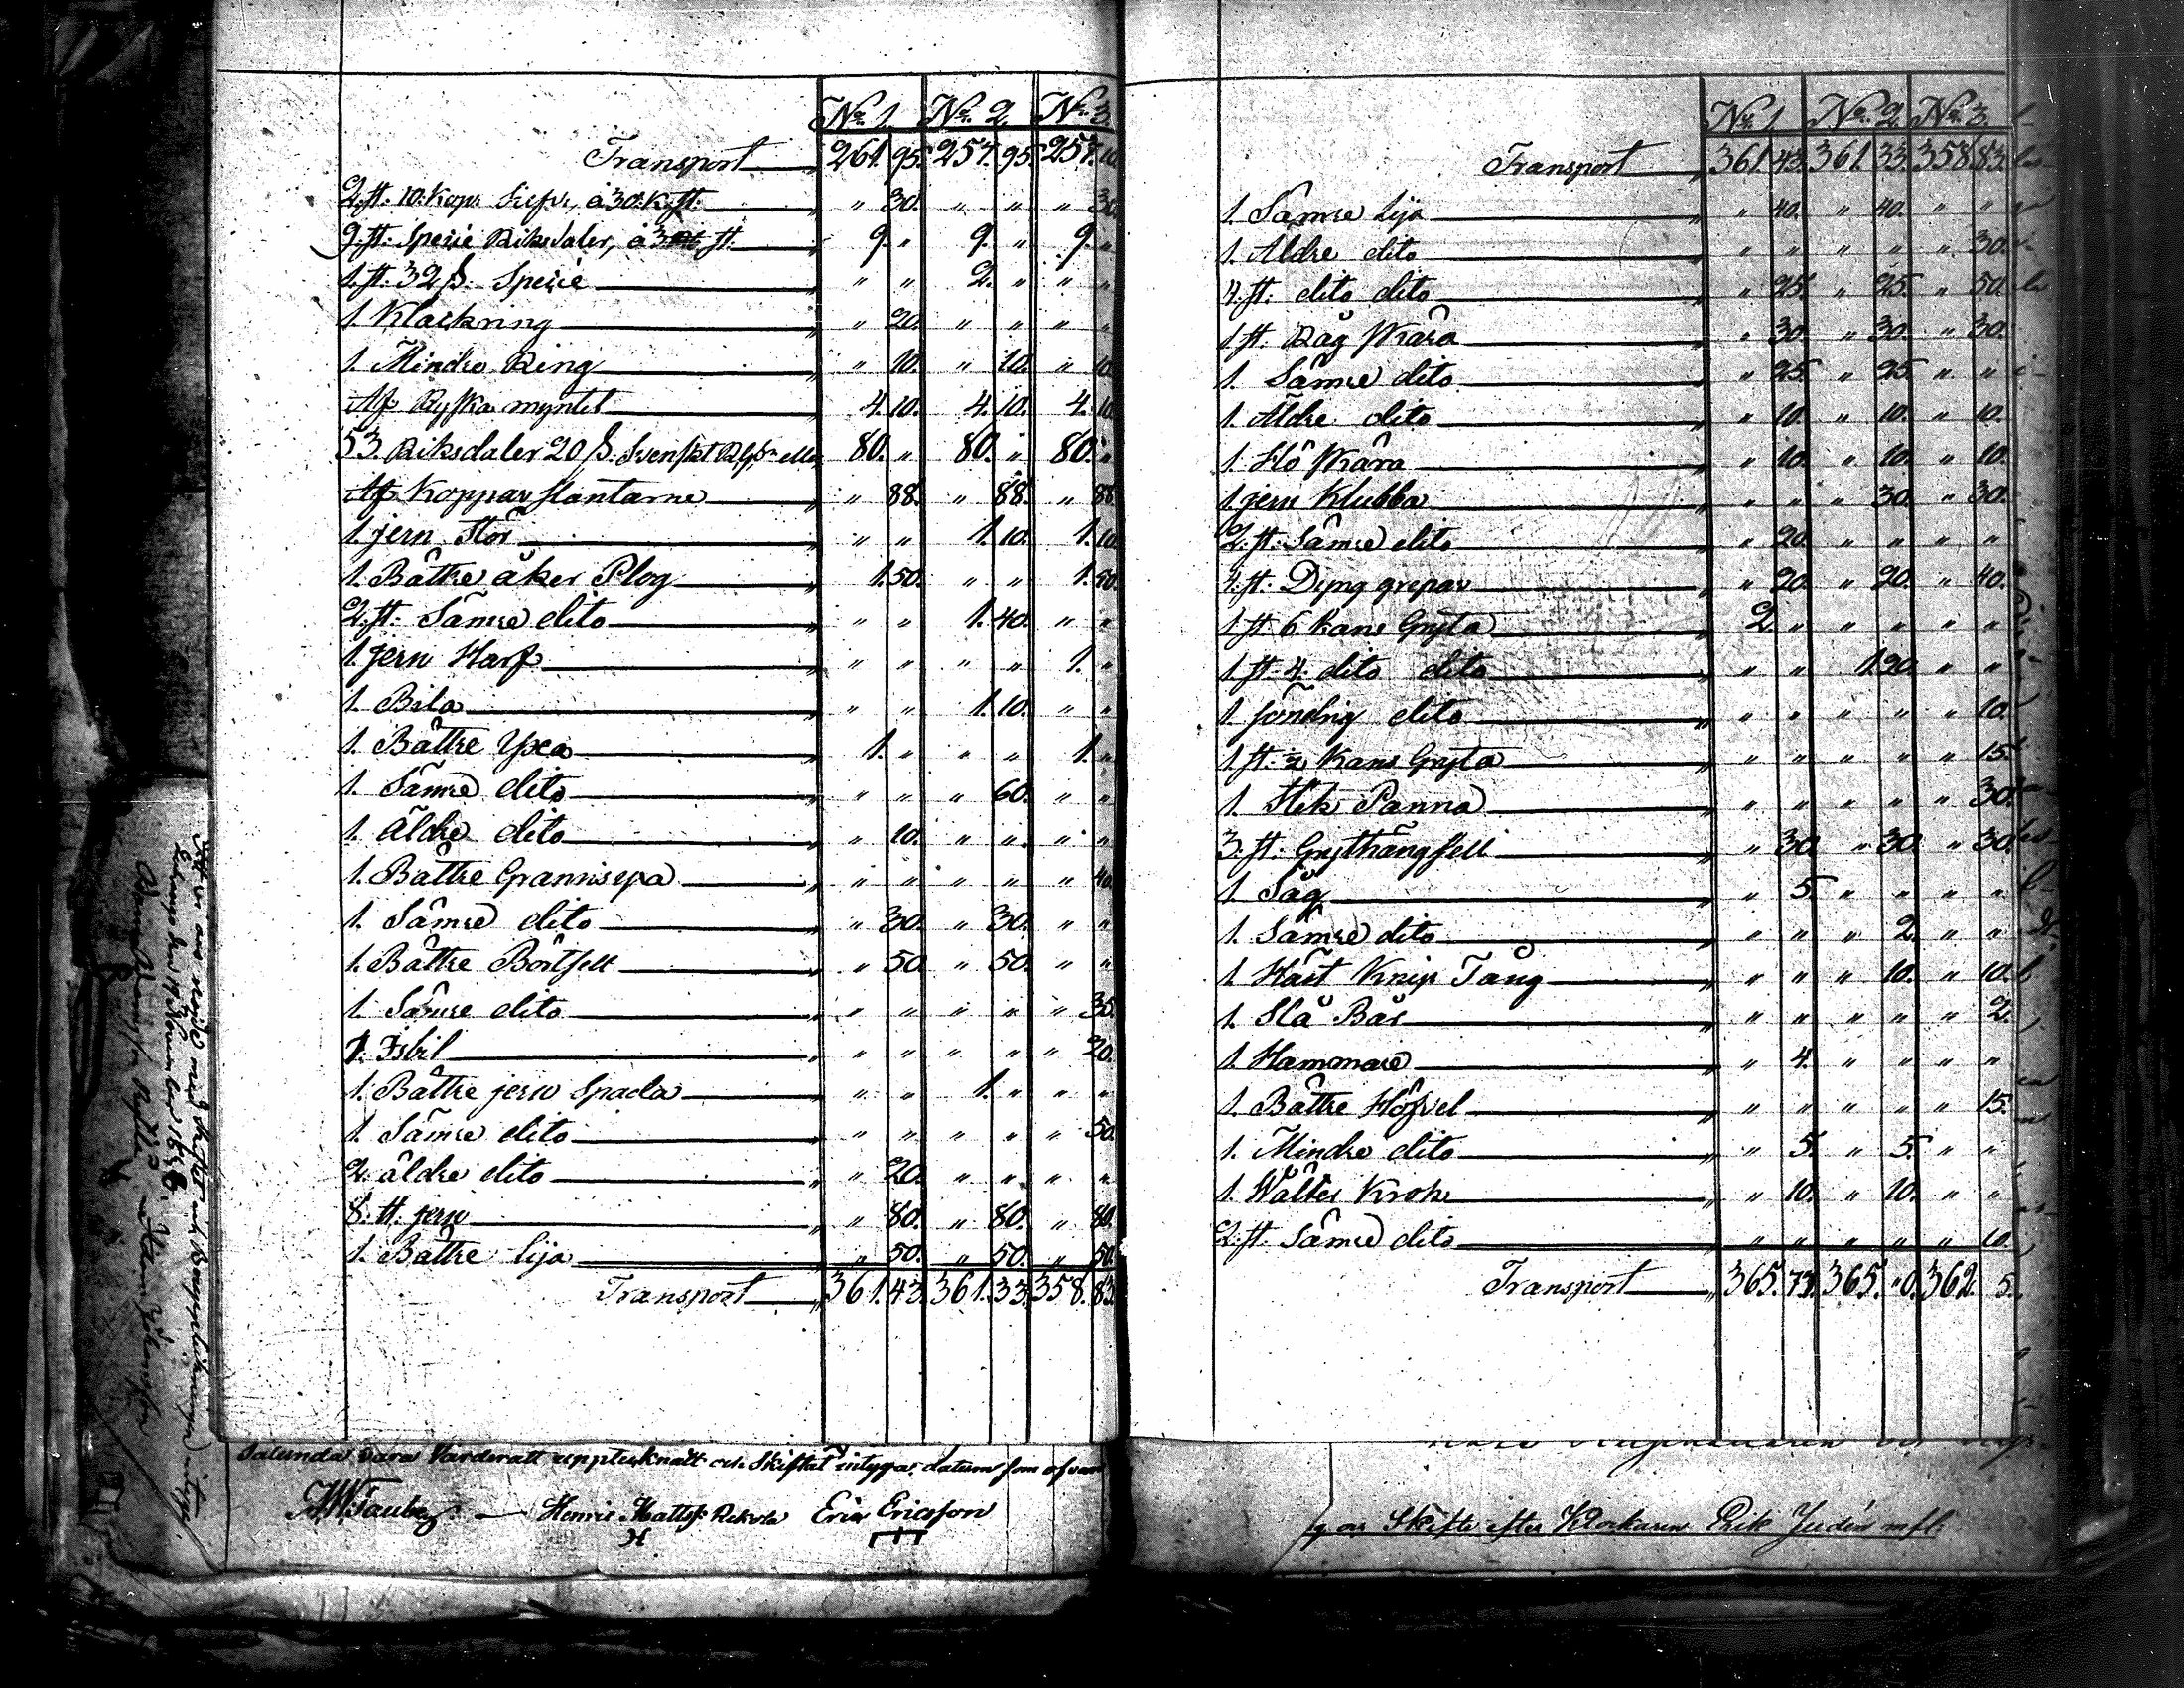 No 1. No 2. No 3.
Transport 261. 95. 257. 95. 257. 10
2. st. 10. Kop: Siefr, á 30. K. st. " 30. " " " 30
9. st. Specie Riksdaler, á 3 st. 9. " 9. " 9. "
1. st. 32 ß. Specie " " 2. " " "
1. Klackring " 20. " " " "
1. Mindre Ring " 10. " 10. " 10
Af Ryska myntet 4. 10. 4. 10. 4. 10
53. Riksdaler 20 ß. Svenskt 80. " 80. " 80. "
Af Koppar slantarne " 88. " 88. " 88
1. jern Stör " " 1. 10. 1. 10
1. Båttre åker Plog 1. 50. " " 1. 50.
2. st. Sâmre dito " " 1. 40. " "
1. jern Harf " " " " 1. "
1. Bila " " 1. 10. " "
1. Båttre Yxa 1. " " " 1. "
1. Sâmre dito " " " 60. " "
1. Äldre dito " 10. " " " "
1. Battre Grannsexa " " " " " 40
1. Sâmre dito " 30. " 30. " "
1. Båttre Bôrtsell " 50. " 50. " "
1. Sâmre dito " " " " " 35.
1. Isbil " " " " " 20.
1. Båttre jern Spada " " 1. " " "
1. Sâmre dito " " " " " 50
2. äldre dito " 20. " " " "
8. lt. jern " 80. " 80. " 80.
1. Båttre Lija " 50. " 50. " 50.
Transport 361. 43. 361. 33. 358. 83.
Salunda vara Varderatt upptecknatt och Skiftat intygar datum som ofvan
Henric Mattss: Rekola Eric Ericsson
No 1. No 2. No 3.
Transport 361. 43. 361. 33. 358. 83.
1. Sâmre Lija " 40. " 40. " "
1. Äldre dito " " " " " 30.
4. st. dito dito " 25. " 25. " 50.
1 st. Råg Skära " 30. " 30. " 30.
1. Sâmre dito " 25. " 25. " "
1. Äldre dito " 10. " 10. " 10.
1. Hô Skâra " 10. " 10. " 10.
1 jern Klubba " " " 30. " 30.
2. st. Sâmre dito " 20. " " " "
4. st. Dyng grepar " 20. " 20. " 40.
1 st. 6 Kans Gryta 2. " " " " "
1 st. 4. dito dito " " 1. 20. " "
1. sôndrig dito " " " " " 10.
1 st. 2 Kans Gryta " " " " " 15.
1. Stek Panna " " " " " 30.
3. st. Grythângsell " 30. " 30. " 30.
1. Såg " 5. " " " "
1. Sâmre dito " " " 2. " "
1. Hâst Knip Tång " " " 10. " 10.
1. Slå Bår " " " " " 2.
1. Hammare " 4. " " " "
1. Båttre Hôfvel " " " " " 15.
1. Mindre dito " 5. " 5. " "
1. Wålter Krok " 10. " 10. " "
2. st. Sâmre dito " " " " " 10.
Transport 365. 77. 365. "0. 362. 5.
Skifte efter Klockaren Erik Judén mfl.